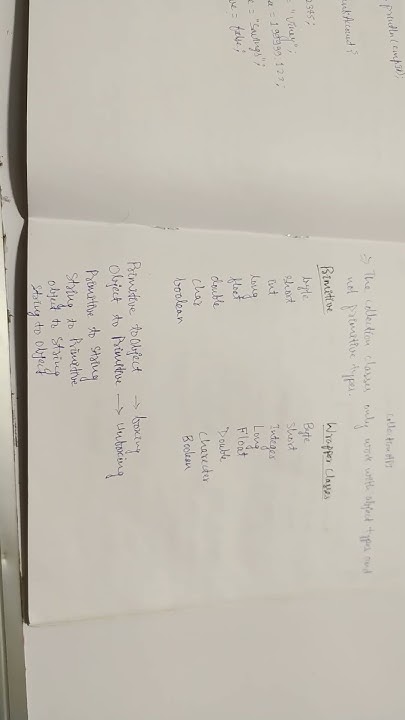 println(emp.
= "Vinay";
= "Savings";
= false;
Collection APIs
=> The Collection classes only work with object types and
not primitive types
Primitive Wrapper Classes
byte Byte
short Short
int Integer
long Long
float Float
double Double
char Character
boolean Boolean
Primitive to Object -> boxing
Object to Primitive -> Unboxing
Primitive to String
String to Primitive
Object to String
String to Object